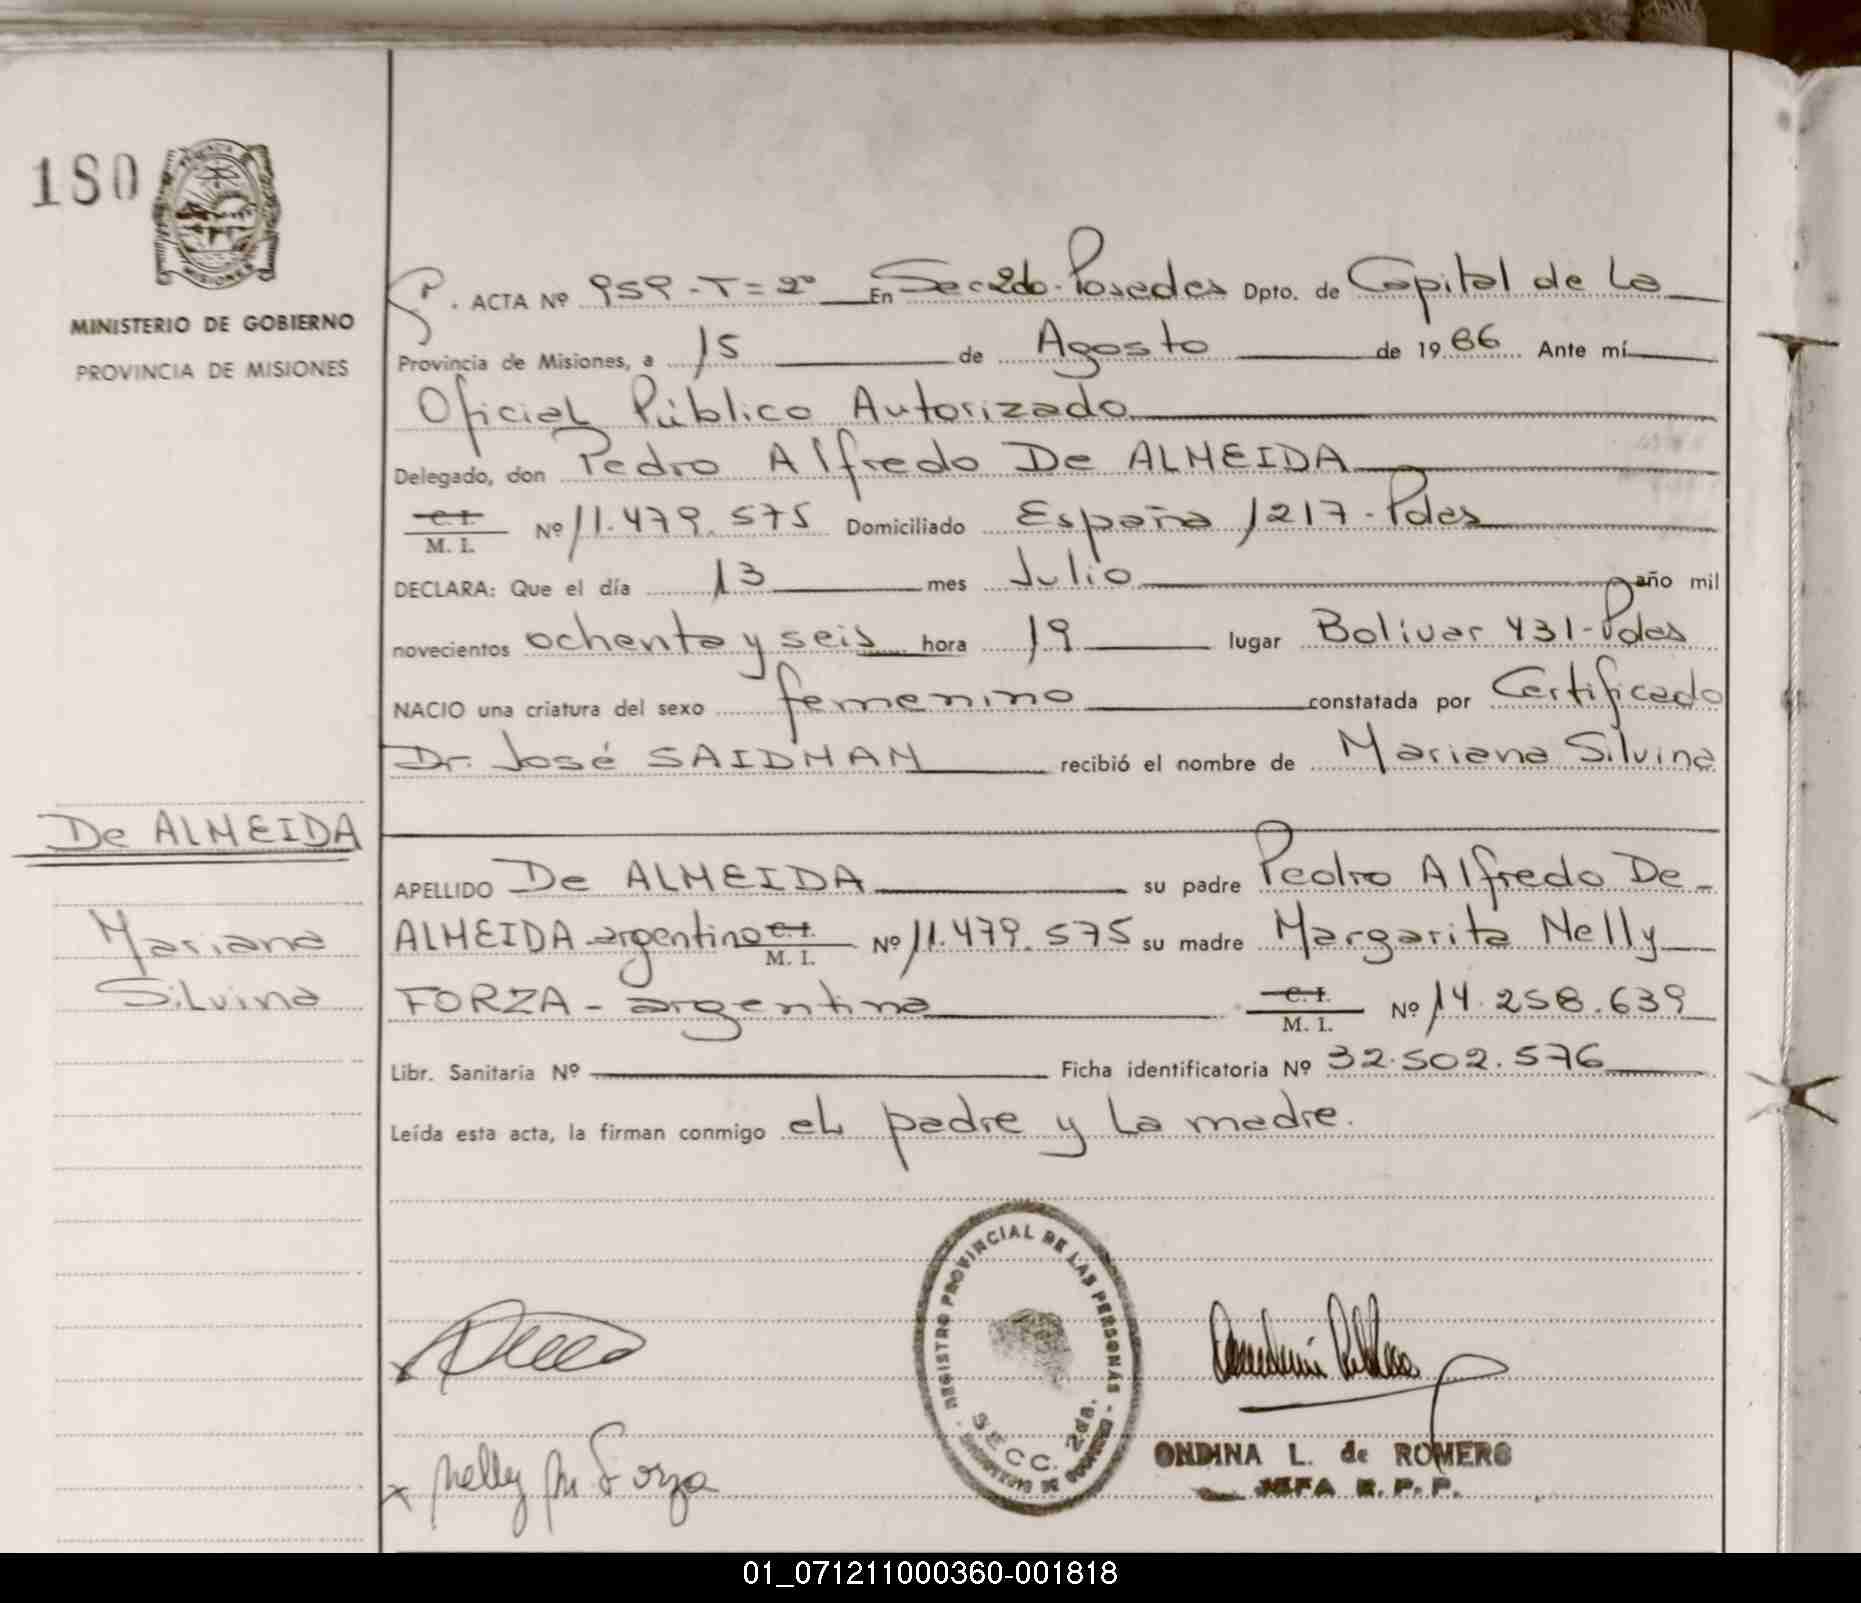 180
MINISTERIO DE GOBIERNO
PROVINCIA DE MISIONES
ACTA Nº 959-T=2º En Secc 2da. Posadas Dpto. de Capital de la
Provincia de Misiones, a 15 de Agosto de 1986 Ante mí
Oficial Público Autorizado
Delegado, don Pedro Alfredo De ALMEIDA
C. I.
M. I. Nº 11.479.575 Domiciliado España 1217-Pdas
DECLARA: Que el día 13 mes Julio año mil
novecientos ochenta y seis hora 19 lugar Bolivar 431-Pdas
NACIO una criatura del sexo femenino constatada por Certificado
Dr. José SAIDMAN recibió el nombre de Mariana Silvina
De ALMEIDA
Mariana
Silvina
APELLIDO De ALMEIDA su padre Pedro Alfredo De
ALMEIDA-argentino C. I. M. I. Nº 11.479.575 su madre Margarita Nelly
FORZA-argentina C. I. M. I. Nº 14.258.639
Libr. Sanitaria Nº Ficha identificatoria Nº 32.502.576
Leída esta acta, la firman conmigo el padre y la madre.
REGISTRO PROVINCIAL DE LAS PERSONAS
SECC. 2da.
Nelly M Forza
ONDINA L. de ROMERO
JEFA R. P. P.
01_071211000360-001818